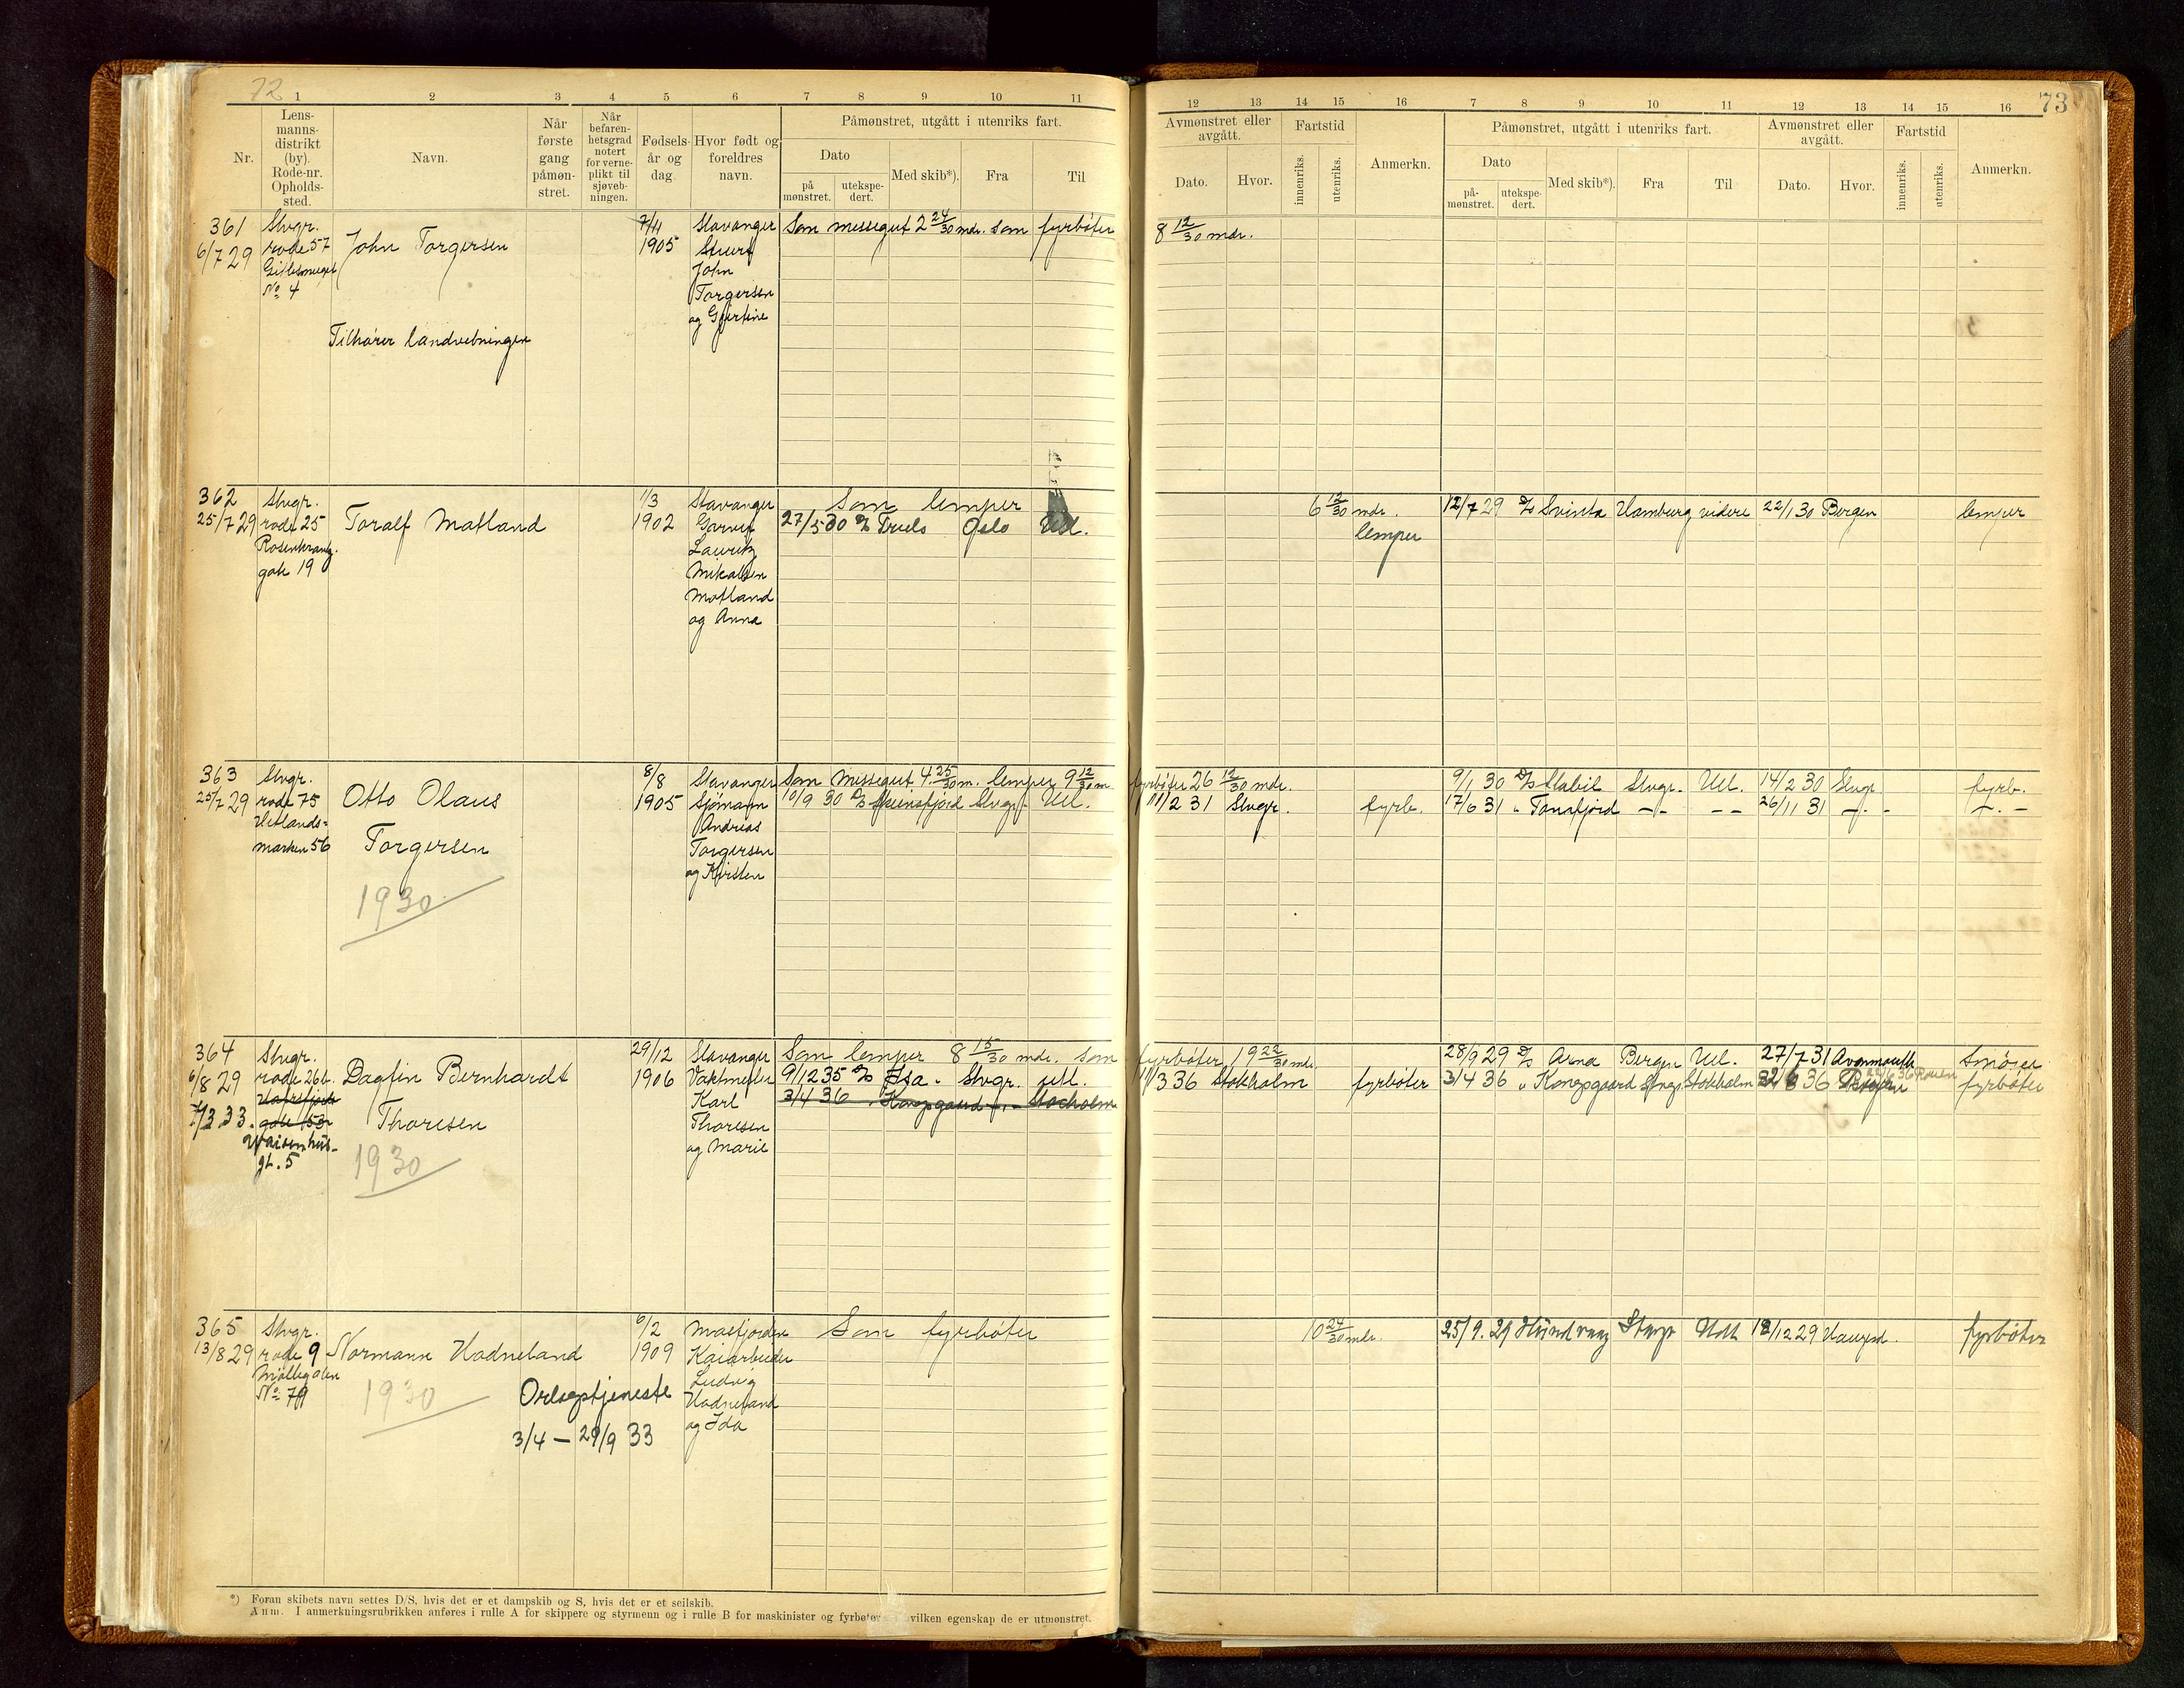 72
1 2 3 4 5 6 7 8 9 10 11
Nr.
Lens-
manns-
distrikt
(by).
Rode-nr.
Opholds-
sted.
Navn.
Når
første
gang
påmøn-
stret.
Når
befaren-
hetsgrad
notert
for verne-
plikt til
sjøveb-
ningen.
Fødsels-
år og
dag
Hvor født og
foreldres
navn.
Påmønstret, utgått i utenriks fart.
Dato
på
mønstret.
utekspe-
dert.
Med skib*).
Fra
Til
361
6/7 29
Stvgr.
rode 57
No 4
John Torgersen
Tilhører landvebningen
7/11
1905
Stavanger
John
Torgersen
og Gjertine
Som messegut 2 24/30 mdr. som fyrbøter
362
25/7 29
Stvgr.
rode 25
Rosenkrantz.
gate 19
Toralf Matland
1/3
1902
Stavanger
Garver
Lauritz
Mikalsen
Matland
og Anna
Som lemper
27/5 30 D/S Truls Oslo Utl.
363
25/7 29
Stvgr.
rode 75
Hetlands-
marken 56
Otto Olaus
Torgersen
1930
8/8
1905
Stavanger
Sjømann
Andreas
Torgersen
og Kirsten
Som messegut 4 25/30 m. lemper 9 12/30 m
10/9 30 D/S Steinsfjord Stvgr. Utl.
364
6/8 29
1/3 33.
Stvgr.
rode 26b.
Hafrsfjords
gate 53
Waisenhus-
gt. 5
Dagfin Bernhardt
Thoresen
1930
29/12
1906
Stavanger
Vaktmester
Karl
Thoresen
og Marie
Som lemper 8 15/30 mdr. som
9/12 35 D/S Isa Stvgr. utl.
3/4 36 Kongsgaard - Stocholm
365
13/8 29
Stvgr.
rode 9
Møllegaten
No 79
Normann Hadneland
1930
Orlogstjeneste
3/4 — 29/9 33
6/2
1909
Mosfjorden
Kaiarbeider
Ludvig
Hadneland
og Ida
Som fyrbøter
*) Foran skibets navn settes D/S, hvis det er et dampskib og S, hvis det er et seilskib.
Anm. I anmerkningsrubrikken anføres i rulle A for skippere og styrmenn og i rulle B for maskinister og fyrbøtere vilken egenskap de er utmønstret.
73
12 13 14 15 16 7 8 9 10 11 12 13 14 15 16
Avmønstret eller
avgått.
Dato.
Hvor.
Fartstid
innenriks.
utenriks.
Anmerkn.
Påmønstret, utgått i utenriks fart.
Dato
på-
mønstret.
utekspe-
dert.
Med skib*).
Fra
Til
Avmønstret eller
avgått.
Dato.
Hvor.
Fartstid
innenriks.
utenriks.
Anmerkn.
8 12/30 mdr.
6 12/30 mdr. 12/7 29 D/S Svinta Hamburg videre 22/1 30 Bergen lemper
lemper
fyrbøter 26 12/30 mdr. 9/1 30 D/S Stabil Stvgr. Utl. 14/2 30 Stvgr. fyrb.
11/2 31 Stvgr. fyrb. 17/6 31 " Tanafjord -"- -- 26/11 31 -"- -"-
fyrbøter 19 22/30 mdr 28/9 29 D/S Arna Bergen Utl. 27/7 31 Avonmouth Smører
11/3 36 Stokholm fyrbøter 3/4 36 " Kongsgaard Stvgr. Stokholm 36 Rouen fyrbøter
10 24/30 mdr. 25/9. 29 Hundvaag Stvgr Utl 12/12 29 Haugsd. fyrbøter